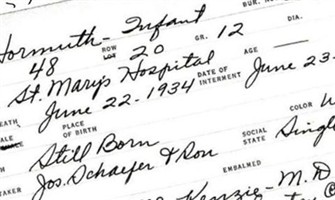 BUR. NO.
Hormuth - Infant
48 ROW LOT 20 GR. 12 DIA.
St. Marys Hospital AGE
June 22-1934 DATE OF INTERMENT June 23-
EATH PLACE OF BIRTH COLOR W
ALE Still Born SOCIAL STATE Single
TAKER Jos. Schaefer & Son EMBALMED
Kenzie - M.D